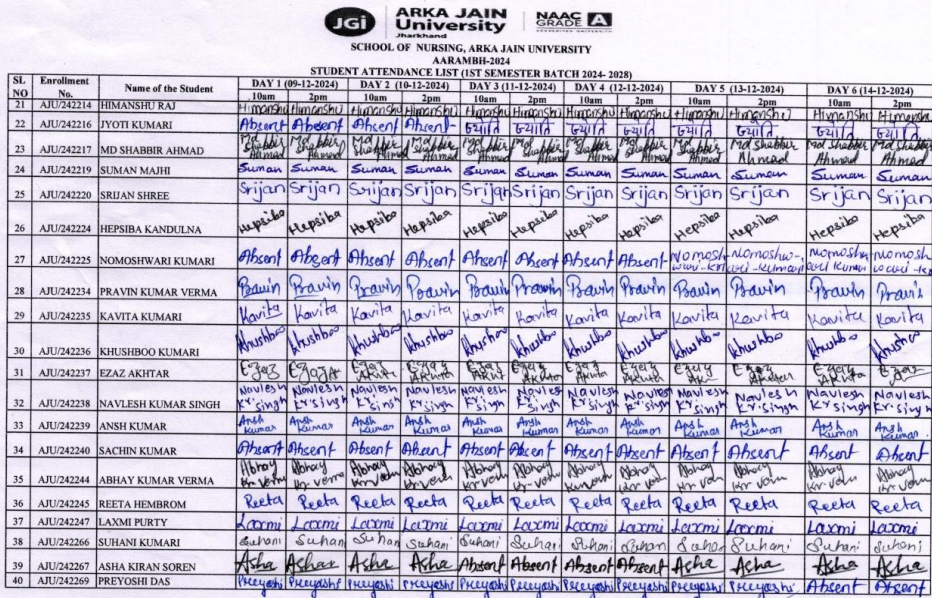 JGi ARKA JAIN University Jharkhand NAAC GRADE A ACCREDITED UNIVERSITY
SCHOOL OF NURSING, ARKA JAIN UNIVERSITY
AARAMBH-2024
STUDENT ATTENDANCE LIST (1ST SEMESTER BATCH 2024- 2028)
SL NO Enrollment No. Name of the Student DAY 1 (09-12-2024) DAY 2 (10-12-2024) DAY 3 (11-12-2024) DAY 4 (12-12-2024) DAY 5 (13-12-2024) DAY 6 (14-12-2024)
10am 2pm 10am 2pm 10am 2pm 10am 2pm 10am 2pm 10am 2pm
21 AJU/242214 HIMANSHU RAJ Himanshu Himanshu Himanshu Himanshu Himanshu Himanshu Himanshu Himanshu Himanshu Himanshu Himanshu Himanshu
22 AJU/242216 JYOTI KUMARI Absent Absent Absent Absent ज्योति ज्योति ज्योति ज्योति ज्योति ज्योति ज्योति ज्योति
23 AJU/242217 MD SHABBIR AHMAD Md Shabbir Ahmed Md Shabbir Ahmed Md Shabbir Ahmed Md Shabbir Ahmed Md Shabbir Ahmed Md Shabbir Ahmed Md Shabbir Ahmed Md Shabbir Ahmed Md Shabbir Ahmed Md Shabbir Ahmed Md Shabbir Ahmed Md Shabbir Ahmed
24 AJU/242219 SUMAN MAJHI Suman Suman Suman Suman Suman Suman Suman Suman Suman Suman Suman Suman
25 AJU/242220 SRIJAN SHREE Srijan Srijan Srijan Srijan Srijan Srijan Srijan Srijan Srijan Srijan Srijan Srijan
26 AJU/242224 HEPSIBA KANDULNA Hepsiba Hepsiba Hepsiba Hepsiba Hepsiba Hepsiba Hepsiba Hepsiba Hepsiba Hepsiba Hepsiba Hepsiba
27 AJU/242225 NOMOSHWARI KUMARI Absent Absent Absent Absent Absent Absent Absent Absent
28 AJU/242234 PRAVIN KUMAR VERMA Pravin Pravin Pravin Pravin Pravin Pravin Pravin Pravin Pravin Pravin Pravin Pravin
29 AJU/242235 KAVITA KUMARI Kavita Kavita Kavita Kavita Kavita Kavita Kavita Kavita Kavita Kavita Kavita Kavita
30 AJU/242236 KHUSHBOO KUMARI Khushboo Khushboo Khushboo Khushboo Khushboo Khushboo Khushboo Khushboo Khushboo Khushboo Khushboo
31 AJU/242237 EZAZ AKHTAR
32 AJU/242238 NAVLESH KUMAR SINGH Navlesh Kr. Singh Navlesh Kr. Singh Navlesh Kr. Singh Navlesh Kr. Singh Navlesh Kr. Singh Navlesh Kr. Singh Navlesh Kr. Singh Navlesh Kr. Singh Navlesh Kr. Singh Navlesh Kr. Singh Navlesh Kr. Singh Navlesh Kr. Singh
33 AJU/242239 ANSH KUMAR Ansh Kumar Ansh Kumar Ansh Kumar Ansh Kumar Ansh Kumar Ansh Kumar Ansh Kumar Ansh Kumar Ansh Kumar Ansh Kumar Ansh Kumar Ansh Kumar
34 AJU/242240 SACHIN KUMAR Absent Absent Absent Absent Absent Absent Absent Absent Absent Absent Absent Absent
35 AJU/242244 ABHAY KUMAR VERMA Abhay Abhay Abhay Abhay Abhay Abhay Abhay Abhay Abhay Abhay Abhay Abhay
36 AJU/242245 REETA HEMBROM Reeta Reeta Reeta Reeta Reeta Reeta Reeta Reeta Reeta Reeta Reeta Reeta
37 AJU/242247 LAXMI PURTY Laxmi Laxmi Laxmi Laxmi Laxmi Laxmi Laxmi Laxmi Laxmi Laxmi Laxmi Laxmi
38 AJU/242266 SUHANI KUMARI Suhani Suhani Suhani Suhani Suhani Suhani Suhani Suhani Suhani Suhani Suhani Suhani
39 AJU/242267 ASHA KIRAN SOREN Asha Asha Asha Asha Absent Absent Absent Absent Asha Asha Asha Asha
40 AJU/242269 PREYOSHI DAS Preyoshi Preyoshi Preyoshi Preyoshi Preyoshi Preyoshi Preyoshi Preyoshi Preyoshi Preyoshi Absent Absent